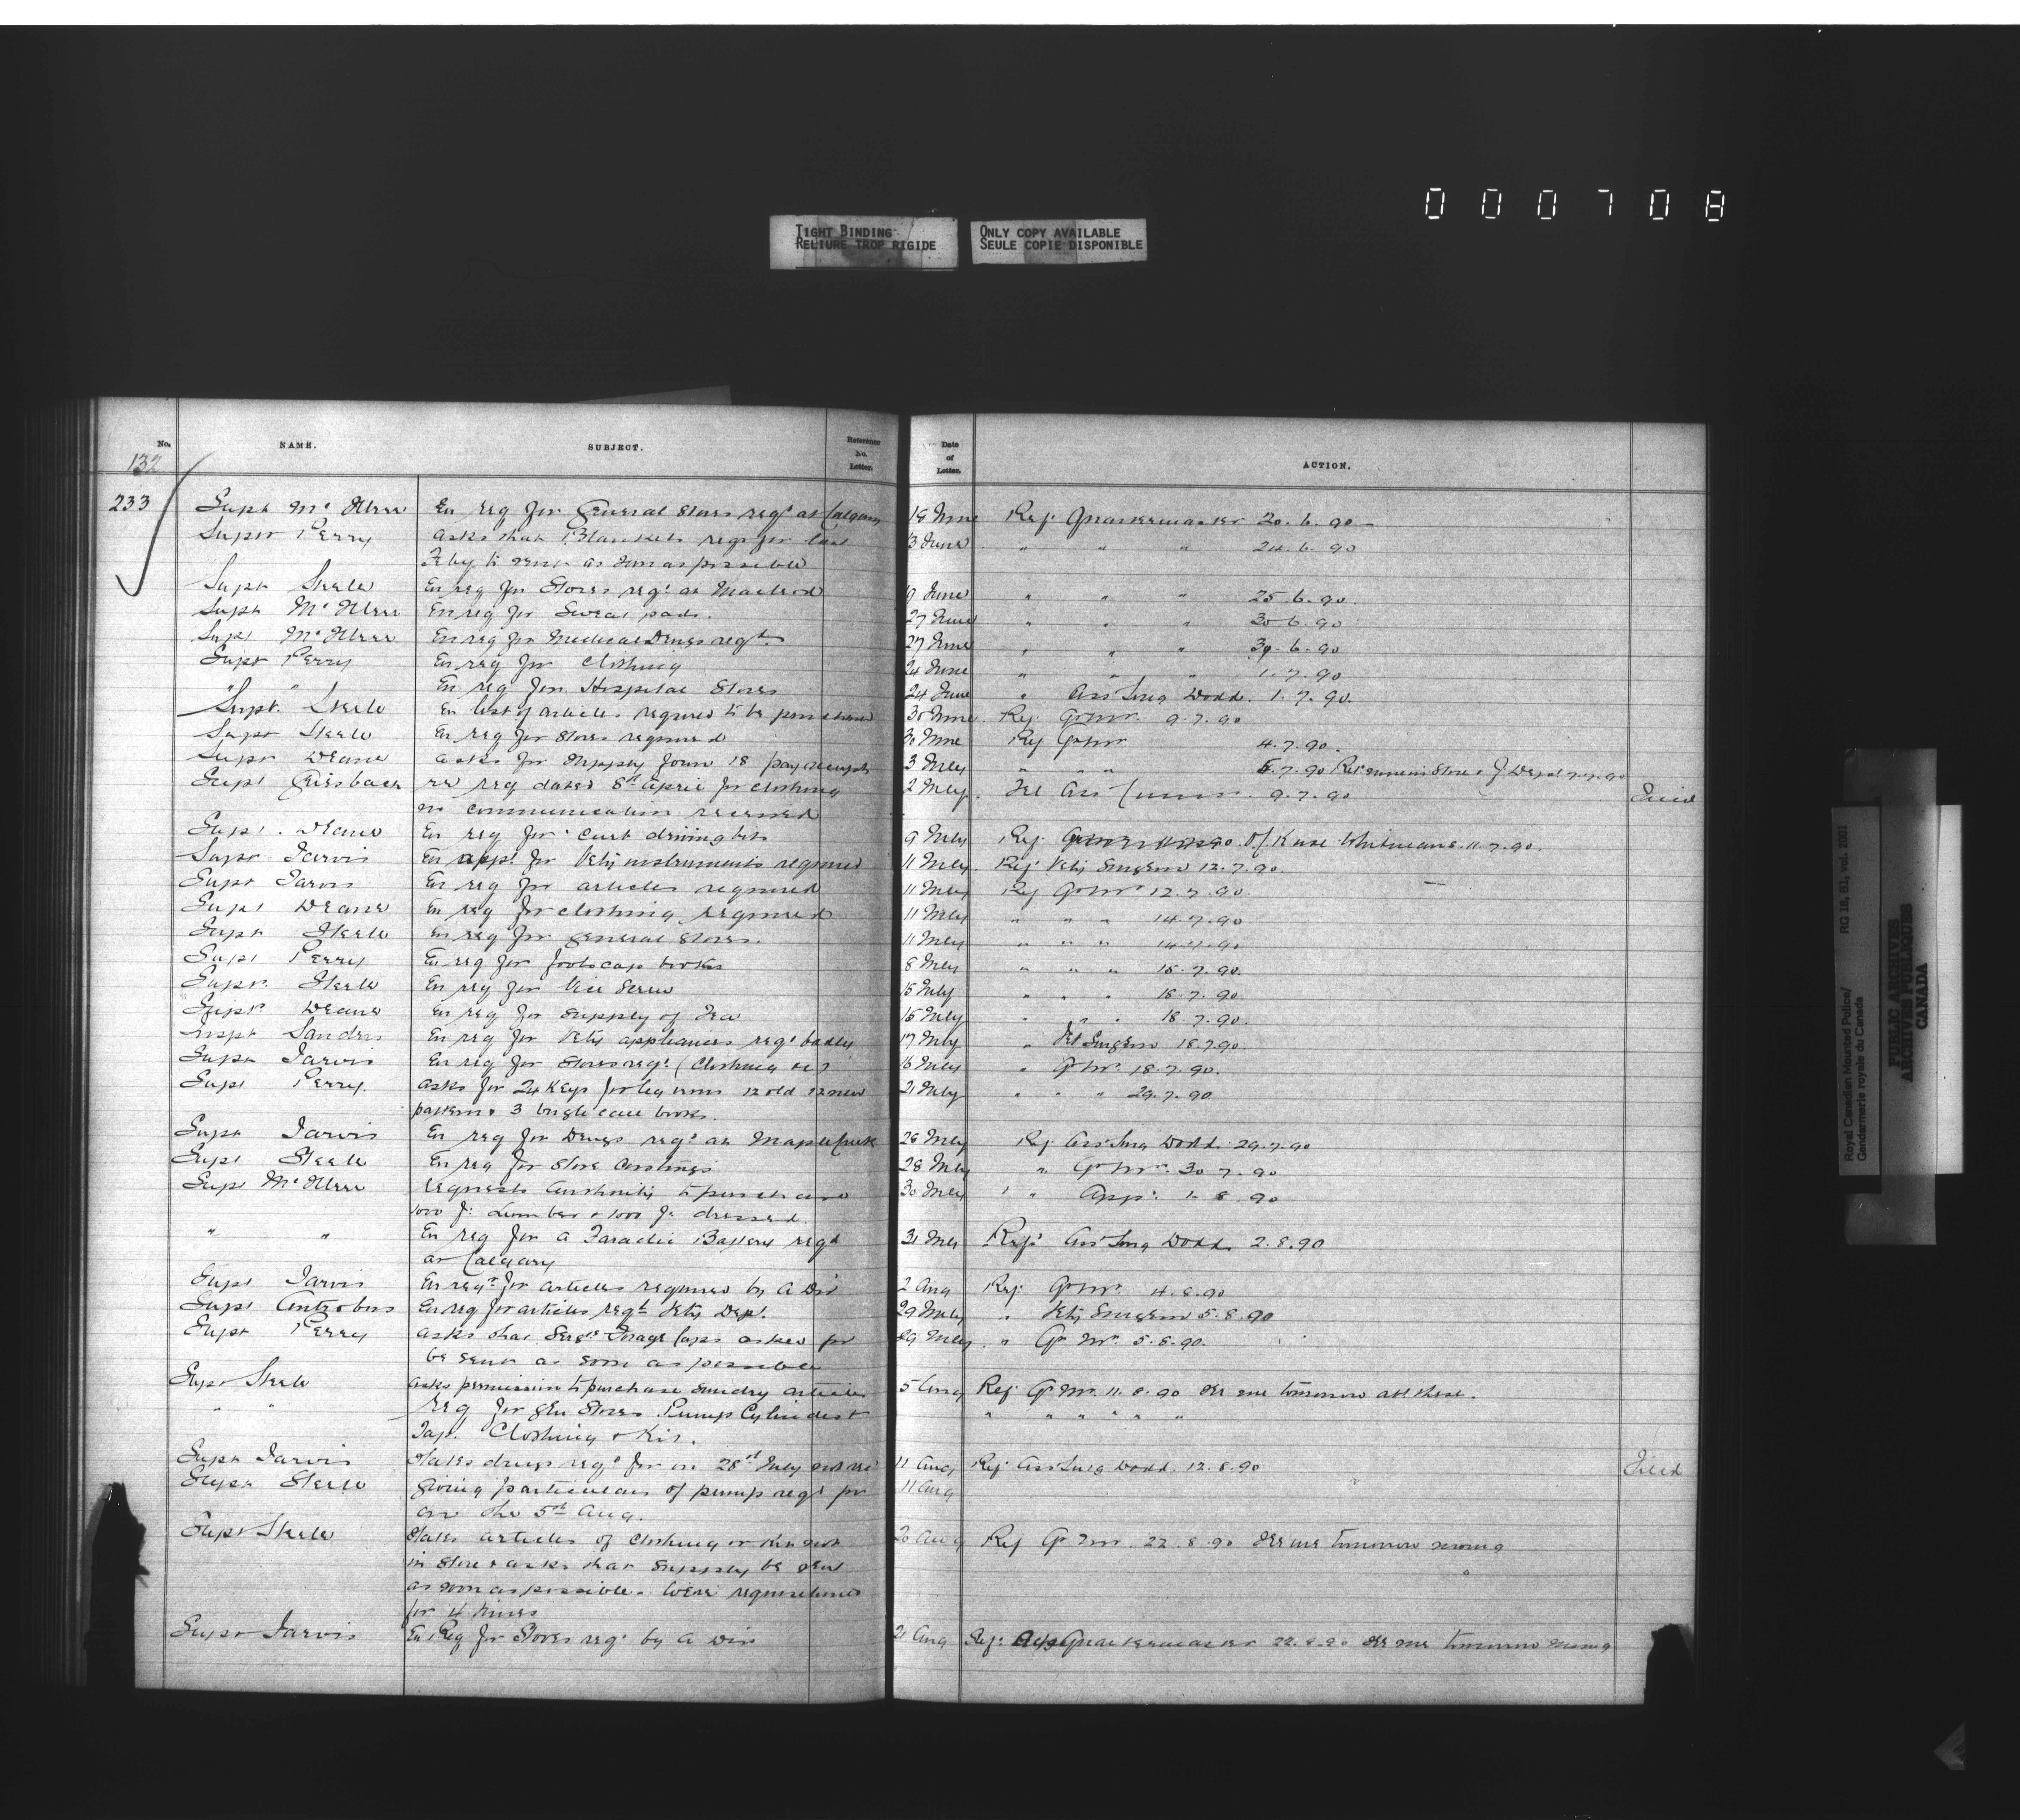 000708
TIGHT BINDING
RELIURE TROP RIGIDE
ONLY COPY AVAILABLE
SEULE COPIE DISPONIBLE
No. NAME. SUBJECT. Reference No. Letter. Date of Letter. ACTION.
132
233 Supt Mc Illree En req for General Stores reqd at Calgary 18 June Ref Quartermaster 20.6.90
Supt Perry asks that Blankets reqd for last 13 June " " " 24.6.90
Feby be sent as soon as possible
Supt Steele En req for Stores reqd at Macleod 19 June " " " 25.6.90
Supt Mc Illree En req for Sweat pads. 27 June " " " 30.6.90
Supt Mc Illree En req for Medical Drugs reqd. 27 June " " " 30.6.90
Supt Perry En req for Clothing 24 June " " " 1.7.90
" " En req for Hospital Stores 24 June " Asst Surg Dodd. 1.7.90.
Supt. Steele En list of articles required to be purchased 30 June. Ref. Qr Mr. 9.7.90
Supt Steele En req for Stores required 30 June Ref Qr Mr 4.7.90.
Supt Deane asks for supply form 18 pay receipts 3 July " " " 5.7.90
Supt Griesbach re req dated 8th April for clothing 2 July. Tel Ass Comm. 9.7.90 Filed
no communication received
Supt. Deane En req for curb driving bits 9 July Ref. 11.7.90.
Supt Jarvis En appl for Vety instruments required 11 July Ref Vety Surgeon 12.7.90.
Supt Jarvis En req for articles required 11 July Ref Qr Mr 12.7.90.
Supt Deane En req for clothing required 11 July " " " 14.7.90
Supt Steele En req for general Stores. 11 July " " " 14.7.90
Supt Perry En req for foolscap books 8 July " " " 15.7.90.
Supt. Steele En req for Vice Screw 15 July " " " 18.7.90.
Supt Deane En req for supply of Tea 15 July " " " 18.7.90.
Inspt Sanders En req for Vety appliances reqd badly 17 July " Vet Surgeon 18.7.90.
Supt Jarvis En req for Stores reqd. (Clothing &c) 16 July " Qr Mr 18.7.90.
Supt Perry. asks for 24 Keys for leg irons 12 old 12 new 21 July " " " 29.7.90
pattern & 3 bugle call books.
Supt Jarvis En req for Drugs reqd at Maple Creek 26 July Ref Asst Surg Dodd. 29.7.90
Supt Steele En req for Stove Castings 28 July " Qr Mr. 30.7.90
Supt Mc Illree requests authority to purchase 30 July " Appd. 1.8.90
1000 ft Lumber & 1000 ft dressed.
" " En req for a Faradic Battery reqd 31 July Ref. Asst Surg Dodd 2.8.90
at Calgary
Supt Jarvis En reqn for articles required by A Div 2 Aug Ref Qr Mr. 4.8.90
Supt Antrobus En req for articles reqd Vety Dept. 29 July " Vety Surgeon 5.8.90
Supt Perry asks that Sergts Forage Caps asked for 29 July " Qr Mr. 5.8.90.
be sent as soon as possible
Supt Steele asks permission to purchase sundry articles 5 Aug Ref. Qr Mr. 11.8.90 See me tomorrow abt these.
" " Req for Gen Stores. Pump Cylinders & " " " " " "
Tap. Clothing & Kit.
Supt Jarvis States drugs reqd for on 28th July not rec 11 Aug Ref. Asst Surg Dodd. 12.8.90 Filed
Supt Steele giving particulars of pump reqd for 11 Aug
on the 5th Aug.
Supt Steele States articles of clothing or Kit not 20 Aug Ref Qr Mr. 22.8.90 See me tomorrow morng
in Store & asks that supply be sent
as soon as possible.
for 4 times
Supt Jarvis En Req for Stores reqd by A Div 21 Aug Ref: Quartermaster 22.8.90 See me tomorrow morng
Royal Canadian Mounted Police/ RG 18, B1, vol. 2001
Gendarmerie royale du Canada
PUBLIC ARCHIVES
ARCHIVES PUBLIQUES
CANADA